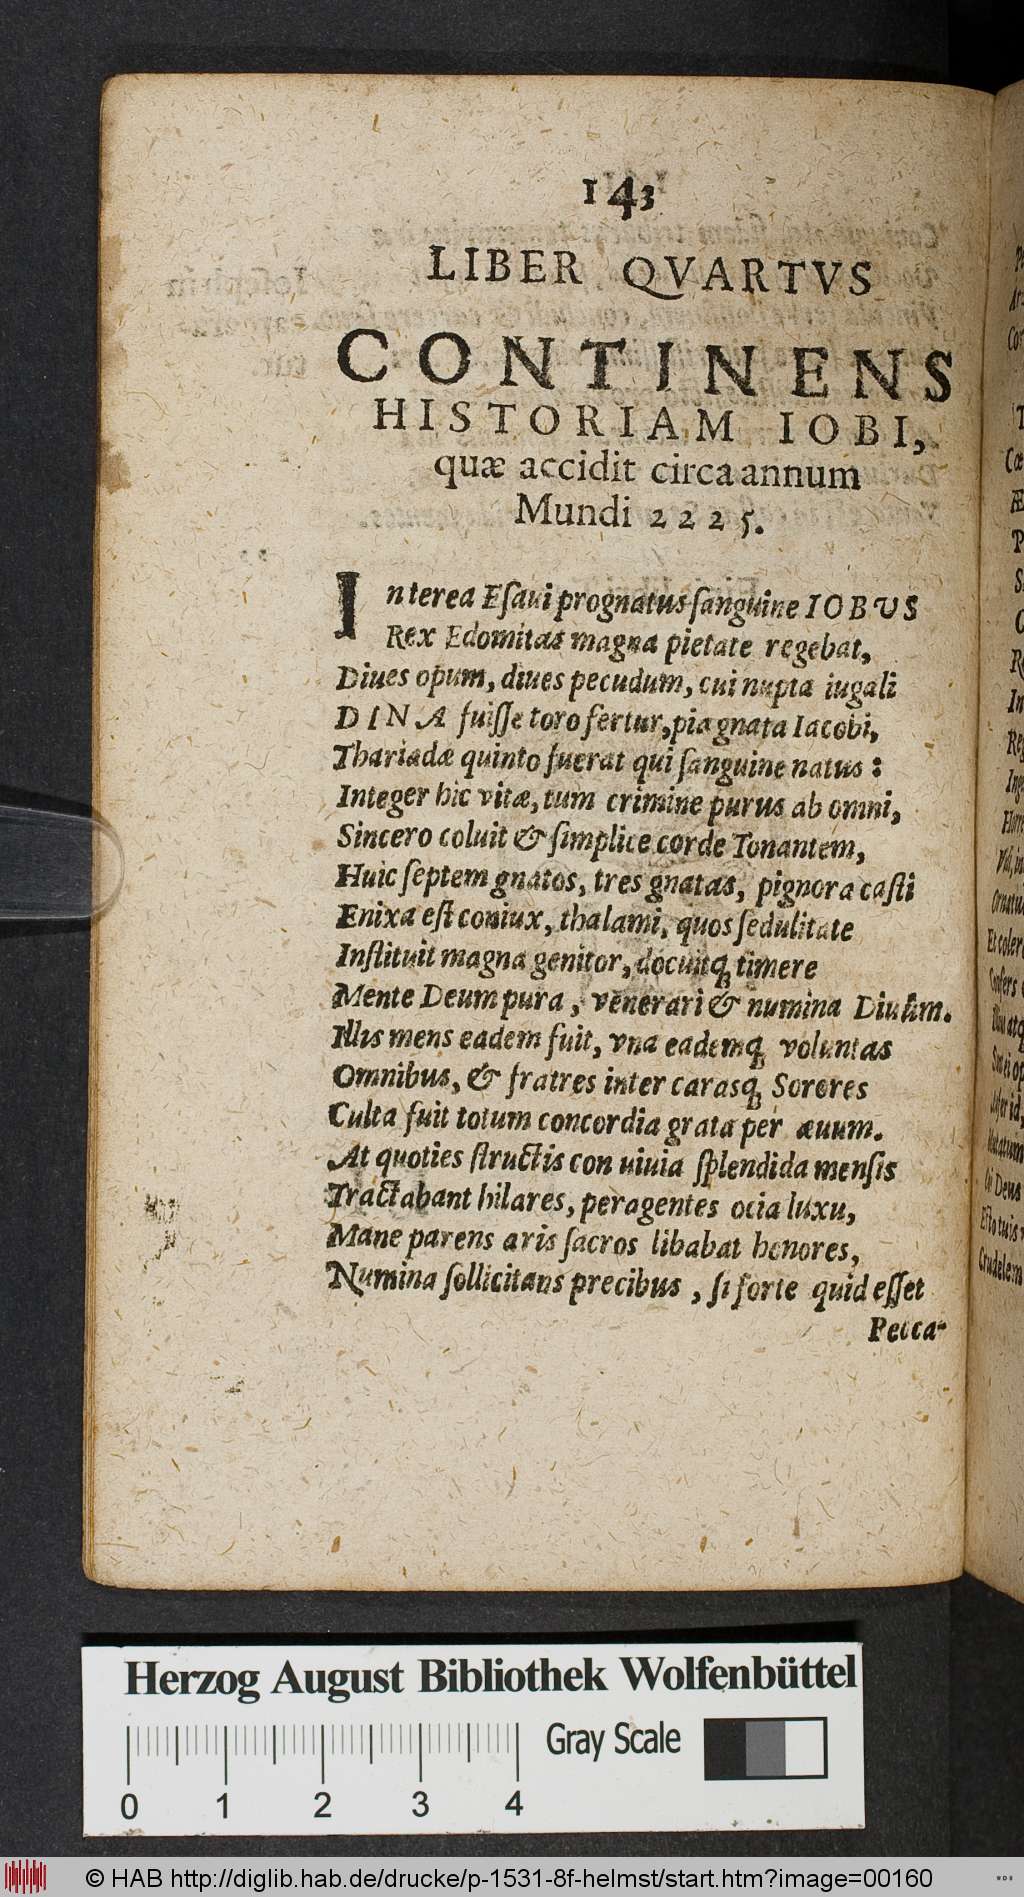 143
LIBER QVARTVS
CONTINENS
HISTORIAM IOBI,
quæ accidit circa annum
Mundi 2225.
Interea Eſaui prognatus ſanguine IOBUS
Rex Edomitas magna pietate regebat,
Diues opum, diues pecudum, cui nupta iugali
DINA fuiſſe toro fertur, pia gnata Iacobi,
Thariadæ quinto fuerat qui ſanguine natus:
Integer hic vitæ, tum crimine purus ab omni,
Sincero coluit & ſimplice corde Tonantem,
Huic ſeptem gnatos, tres gnatas, pignora caſti
Enixa eſt coniux, thalami, quos ſedulitate
Inſtituit magna genitor, docuitq; timere
Mente Deum pura, venerari & numina Diuûm.
Illis mens eadem fuit, vna eademq; voluntas
Omnibus, & fratres inter carasq; Sorores
Culta fuit totum concordia grata per æuum.
At quoties ſtructis conuiuia ſplendida menſis
Tractabant hilares, peragentes ocia luxu,
Mane parens aris ſacros libabat honores,
Numina ſollicitans precibus, ſi forte quid eſſet
Pecca-
Herzog August Bibliothek Wolfenbüttel
Gray Scale
0 1 2 3 4
© HAB http://diglib.hab.de/drucke/p-1531-8f-helmst/start.htm?image=00160